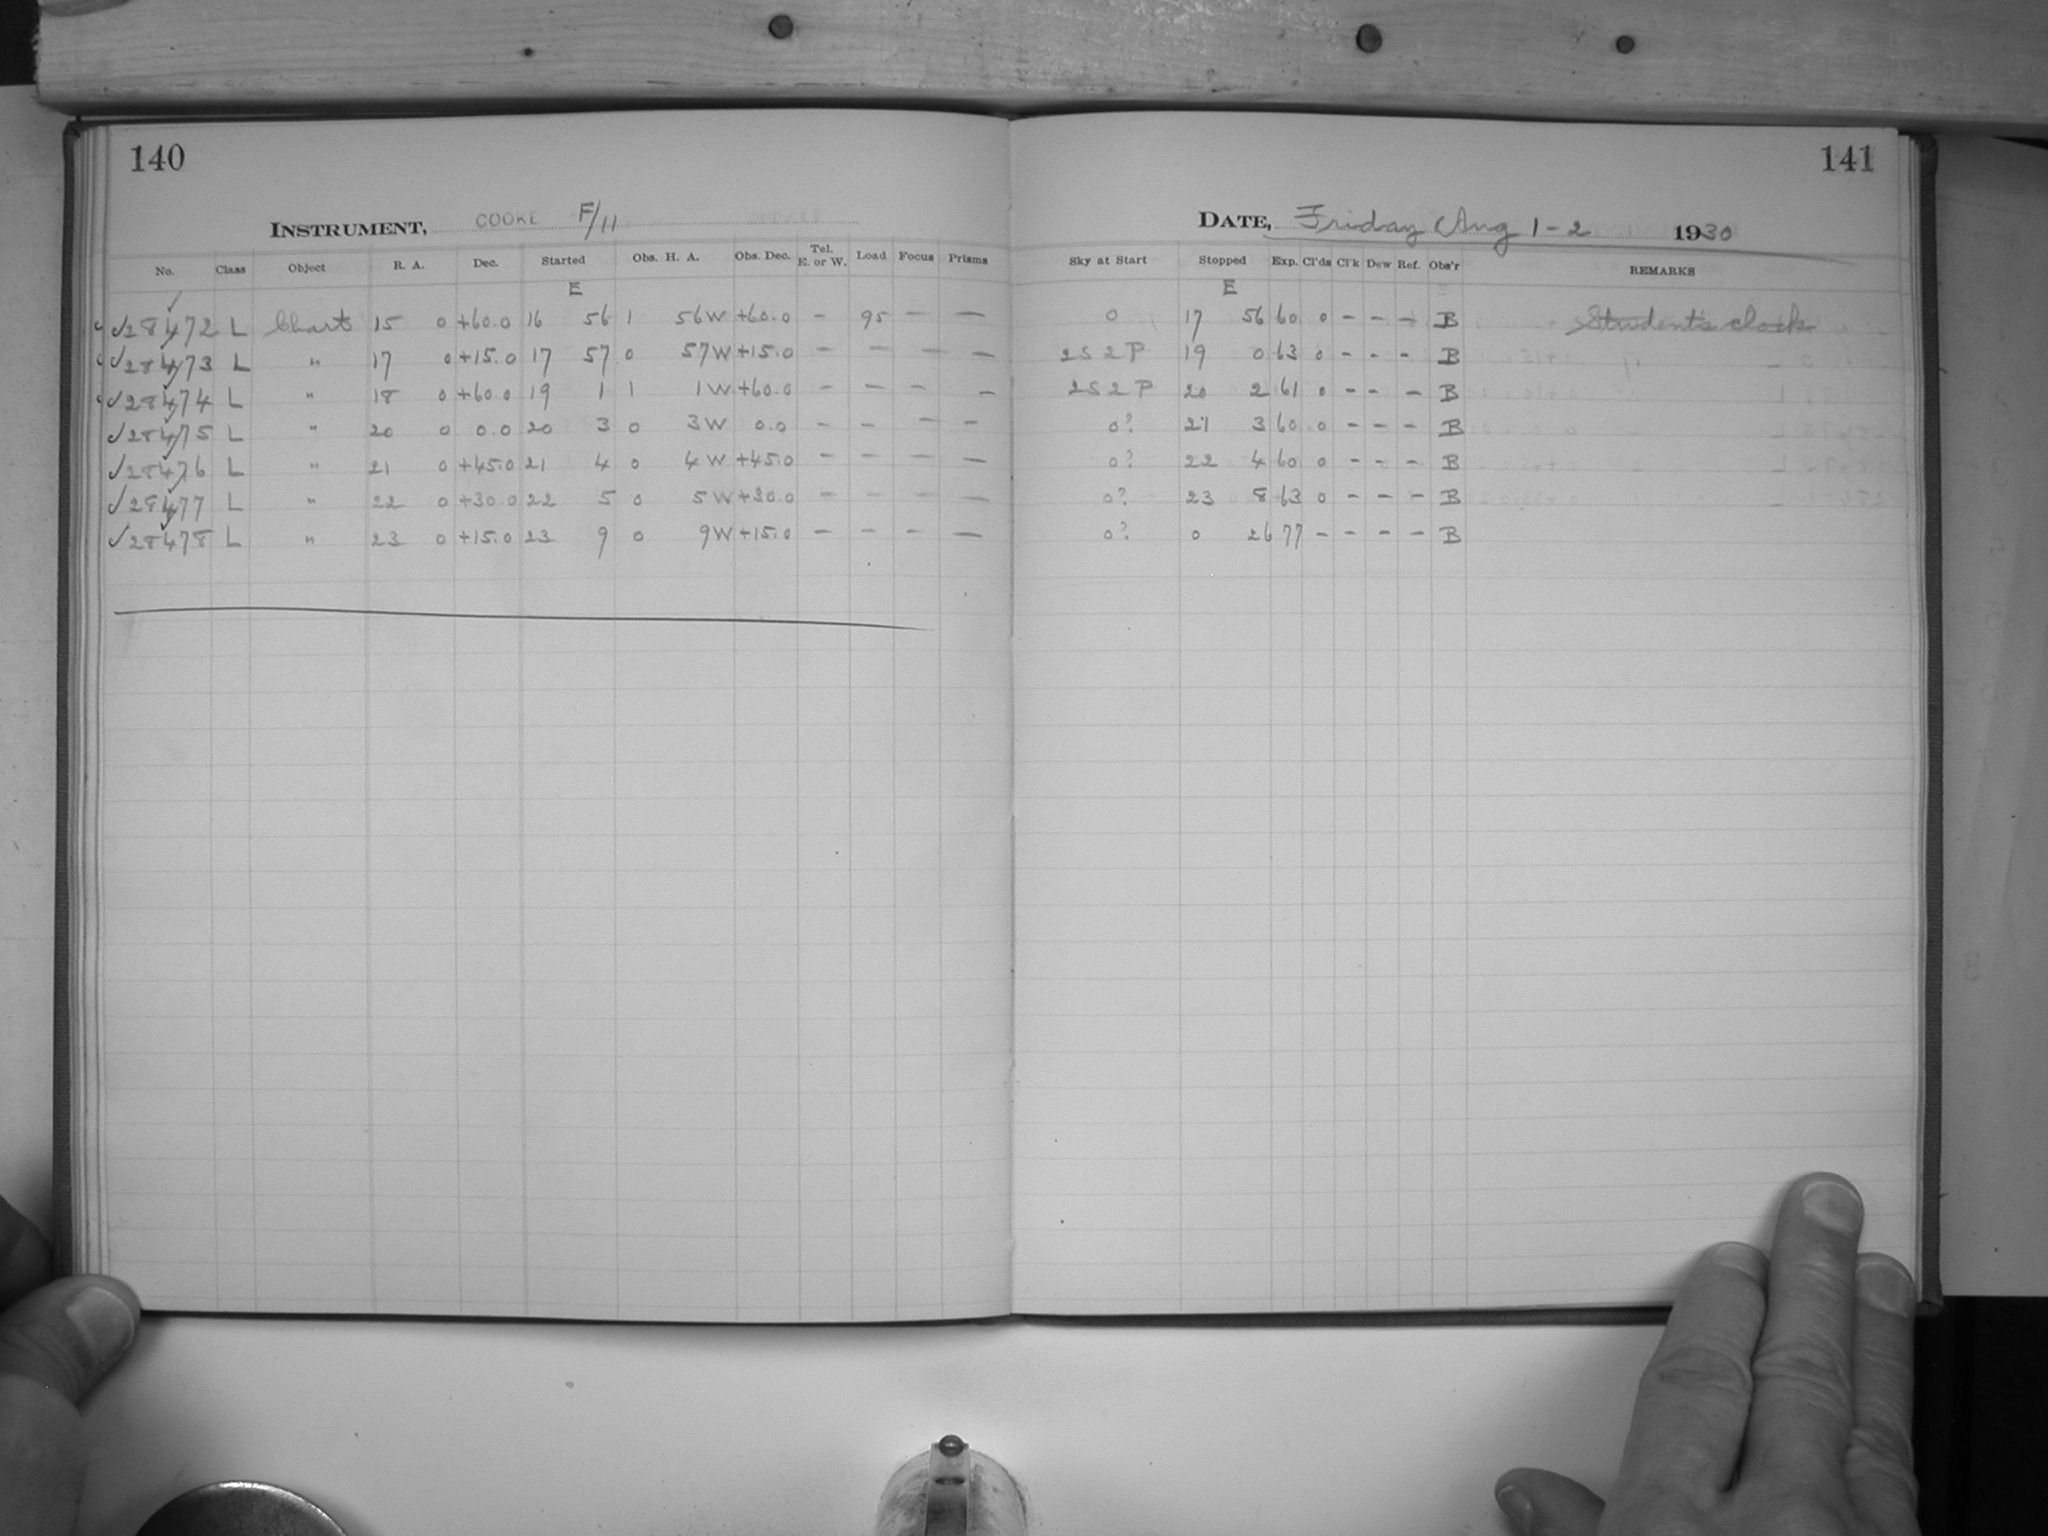 140
INSTRUMENT, COOKE F/11
No. Class Object R. A. Dec. Started Obs. H. A. Obs. Dec. Tel. E. or W. Load Focus Prisms
E
✓28472 L Chart 15 0 +60.0 16 56 1 56W +60.0 - 95 - -
✓28473 L " 17 0 +15.0 17 57 0 57W +15.0 - - - -
✓28474 L " 18 0 +60.0 19 1 1 1W +60.0 - - - -
✓28475 L " 20 0 0.0 20 3 0 3W 0.0 - - - -
✓28476 L " 21 0 +45.0 21 4 0 4W +45.0 - - - -
✓28477 L " 22 0 +30.0 22 5 0 5W +30.0 - - - -
✓28478 L " 23 0 +15.0 23 9 0 9W +15.0 - - - -
141
DATE, Friday Aug 1-2 1930
Sky at Start Stopped Exp. Cl'ds Cl'k Dew Ref. Obs'r REMARKS
E
0 17 56 60 0 - - - B Student's clock
2S 2P 19 0 63 0 - - - B
2S 2P 20 2 61 0 - - - B
0? 21 3 60 0 - - - B
0? 22 4 60 0 - - - B
0? 23 8 63 0 - - - B
0? 0 26 77 - - - - B